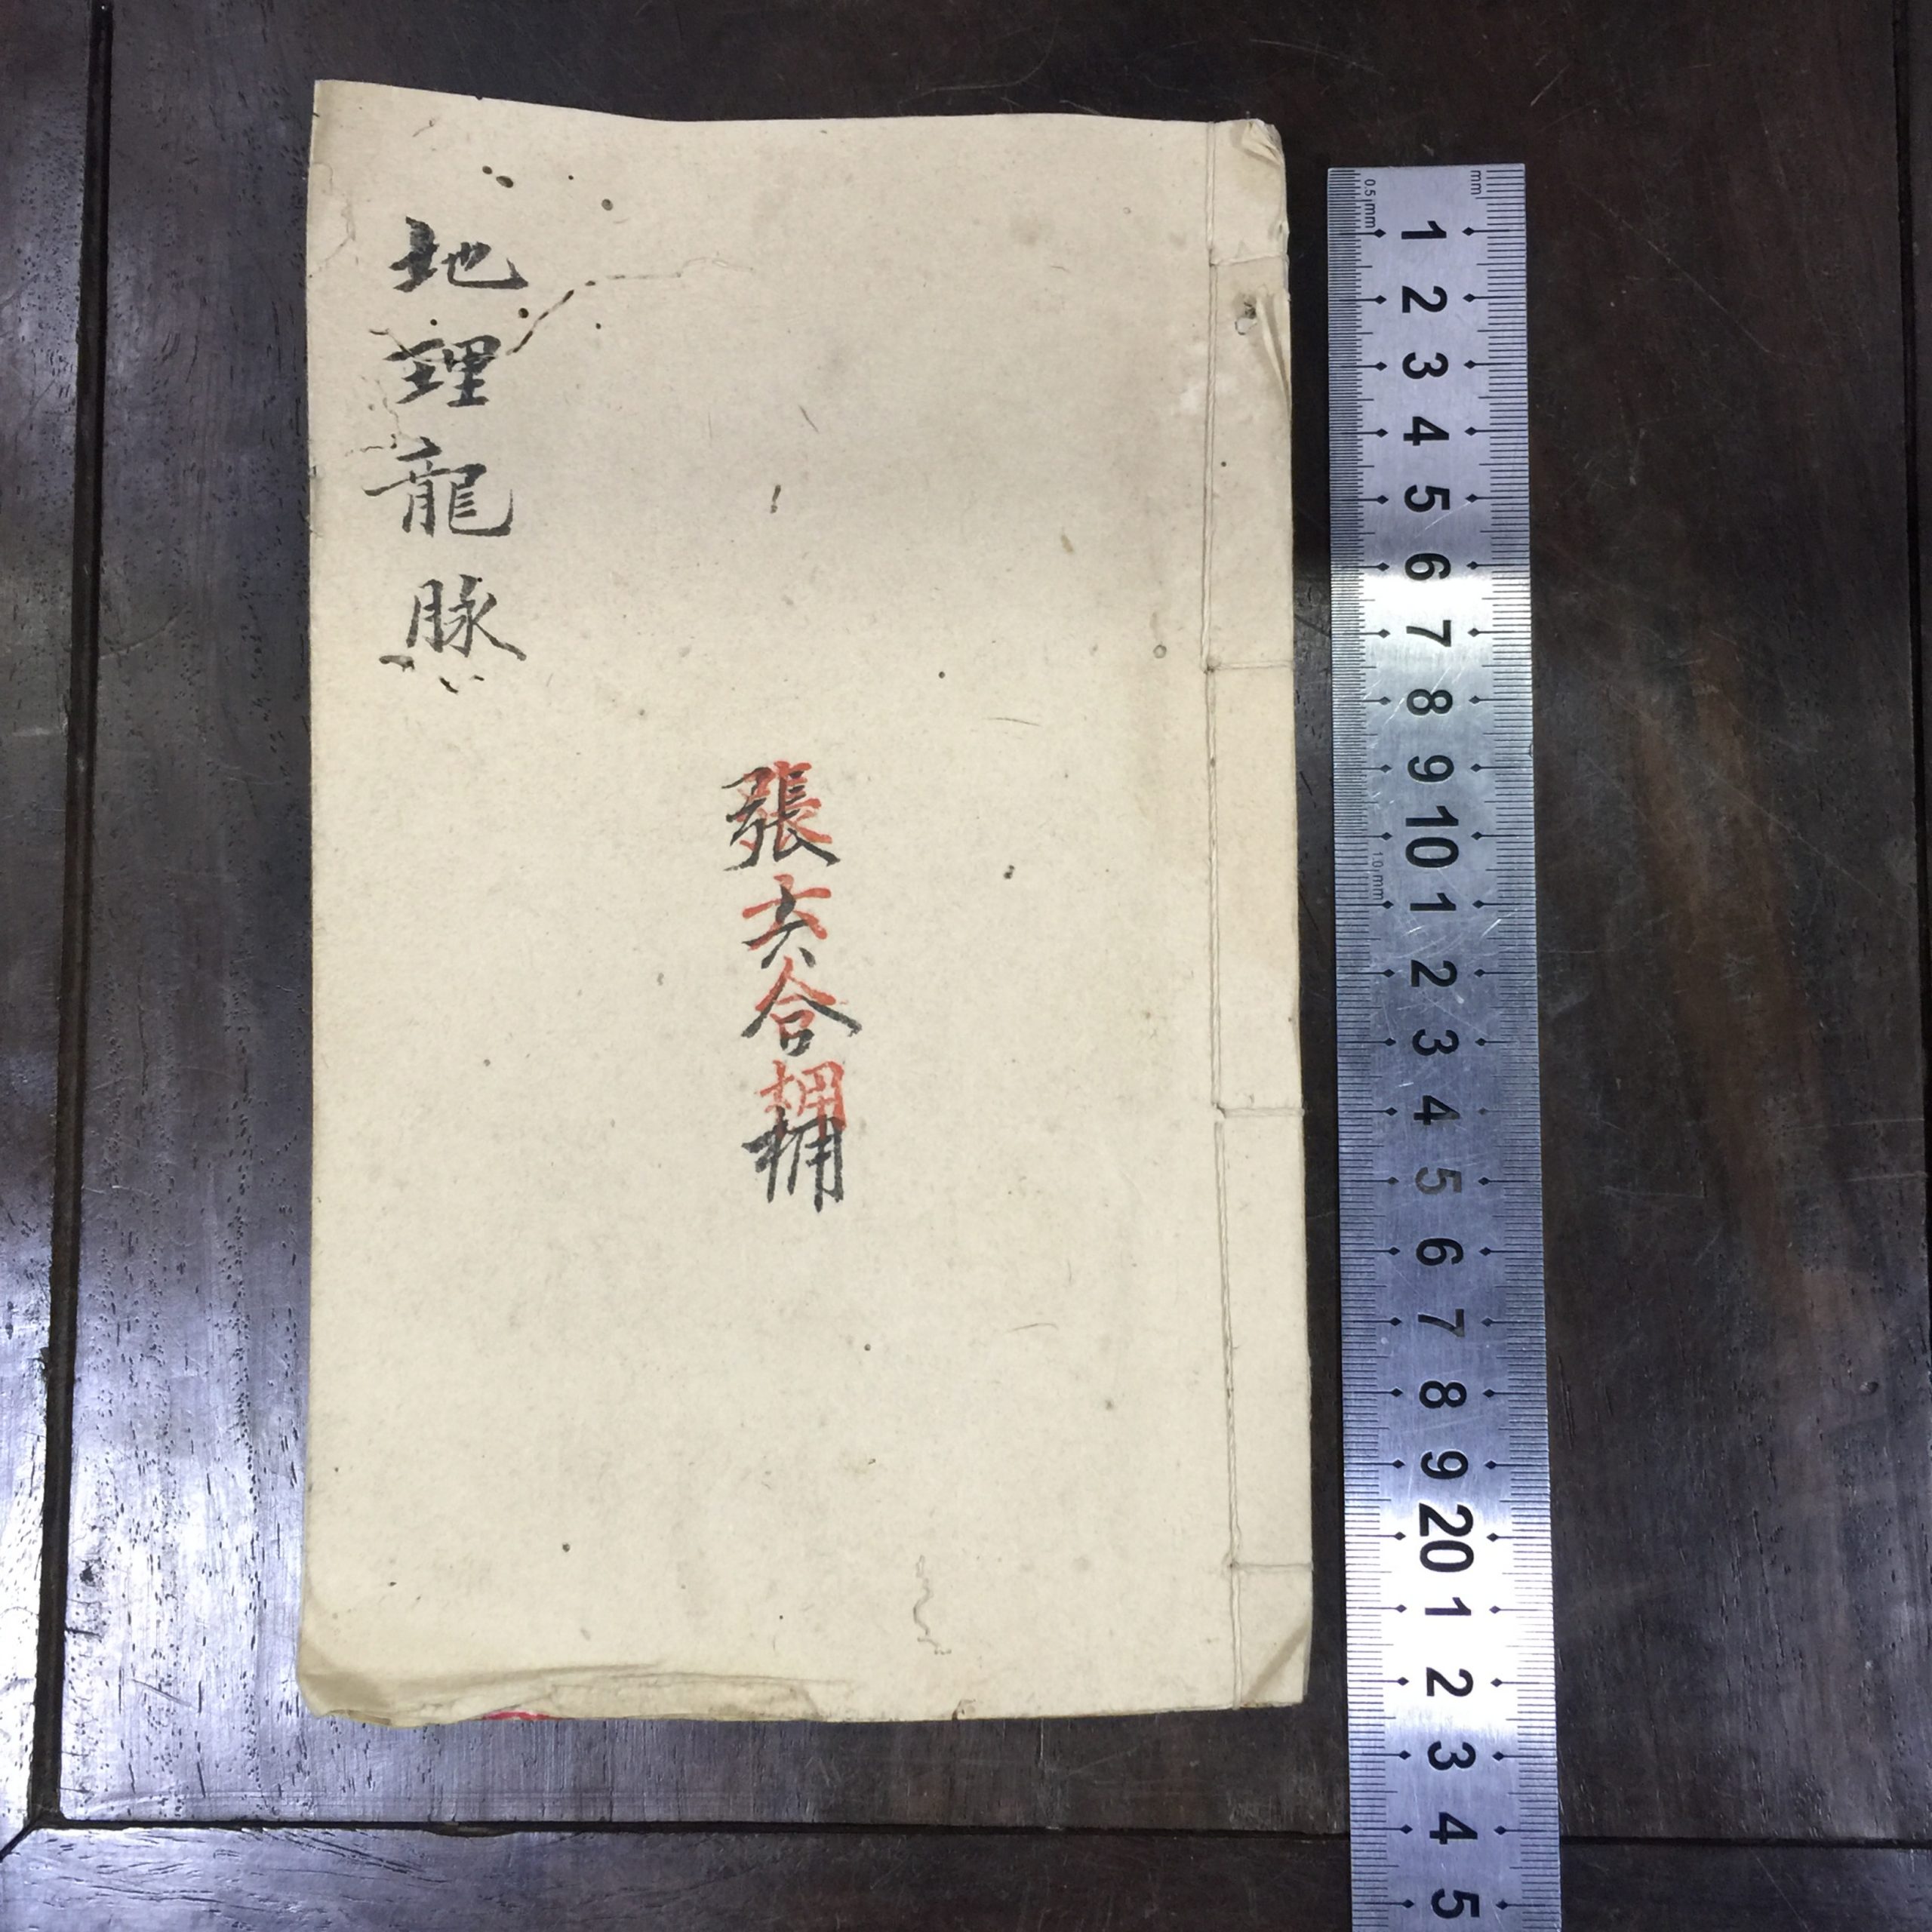 地理龍脉
張六合
mm
0.5mm
1 2 3 4 5 6 7 8 9 10 1 2 3 4 5 6 7 8 9 20 1 2 3 4 5
1.0mm